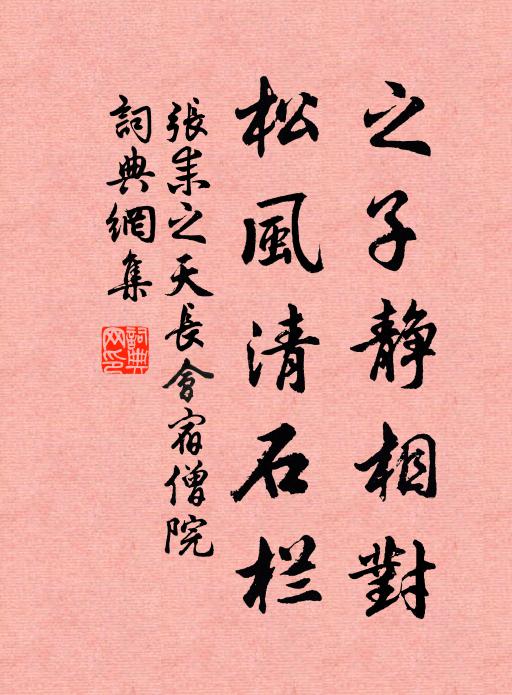 之子静相對
松風清石栏
張耒之天長會宿僧院
詞典網集
詞典網印